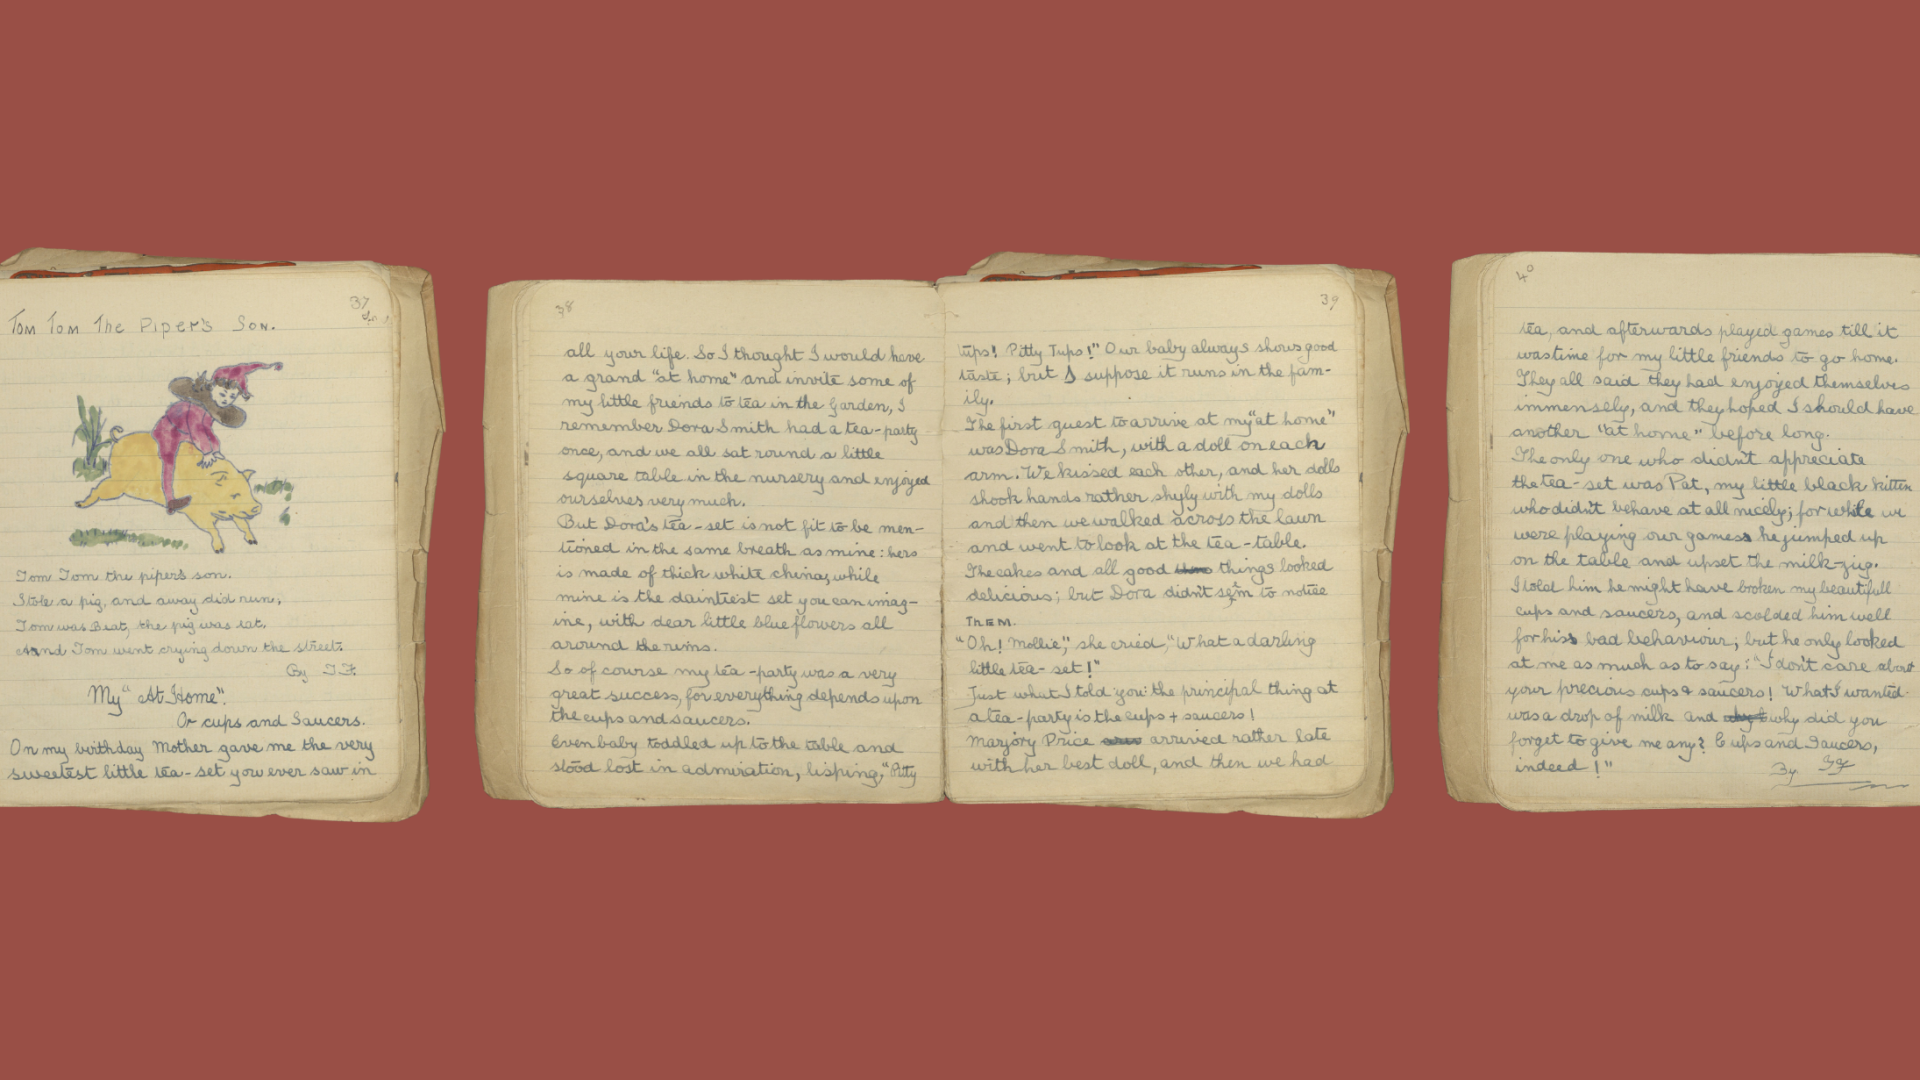 37
Tom Tom The Piper's Son.
Tom Tom the piper's son.
Stole a pig, and away did run,
Tom was Beat, the pig was eat,
And Tom went crying down the street.
By
My "At Home".
Or cups and Saucers.
On my birthday Mother gave me the very
sweetest little tea-set you ever saw in
38
all your life. So I thought I would have
a grand "at home" and invite some of
my little friends to tea in the Garden, I
remember Dora Smith had a tea-party
once, and we all sat round a little
square table in the nursery and enjoyed
ourselves very much.
But Dora's tea-set is not fit to be men-
tioned in the same breath as mine: hers
is made of thick white china, while
mine is the daintiest set you can imag-
ine, with dear little blue flowers all
around the rims.
So of course my tea-party was a very
great success, for everything depends upon
the cups and saucers.
Even baby toddled up to the table and
stood lost in admiration, lisping, "Pitty
39
tups! Pitty Tups!" Our baby always shows good
taste; but I suppose it runs in the fam-
ily.
The first guest to arrive at my "at home"
was Dora Smith, with a doll on each
arm. We kissed each other, and her dolls
shook hands rather shyly with my dolls
and then we walked across the lawn
and went to look at the tea-table.
The cakes and all good things looked
delicious; but Dora didn't seem to notice
THEM.
"Oh! Mollie," she cried, "What a darling
little tea-set!"
Just what I told you: the principal thing at
a tea-party is the cups + saucers!
Marjory Price arrived rather late
with her best doll, and then we had
40
tea, and afterwards played games till it
was time for my little friends to go home.
They all said they had enjoyed themselves
immensely, and they hoped I should have
another "at home" before long.
The only one who didn't appreciate
the tea-set was Pat, my little black kitten
who didn't behave at all nicely; for while we
were playing our games he jumped up
on the table and upset the milk-jug.
I told him he might have broken my beautifull
cups and saucers, and scolded him well
for his bad behaviour; but he only looked
at me as much as to say: "I don't care about
your precious cups & saucers! What I wanted
was a drop of milk and why did you
forget to give me any? Cups and Saucers,
indeed!"
By.